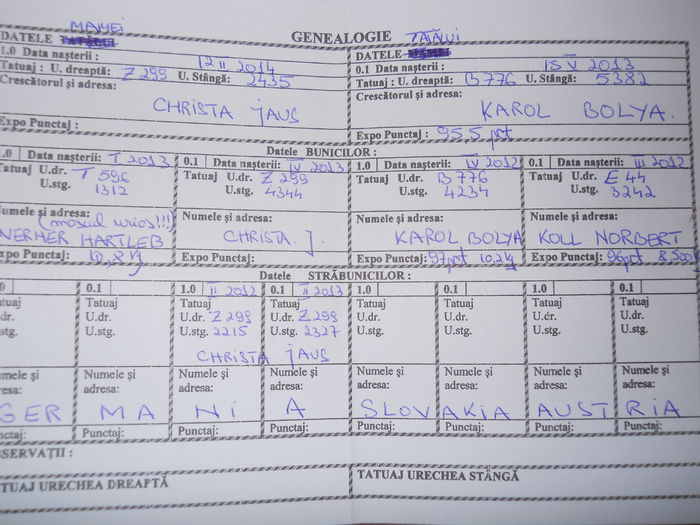 MAMEI
GENEALOGIE TATĂLUI
DATELE
DATELE
1.0 Data nașterii : 12 II 2014
0.1 Data nașterii : 15 V 2013
Tatuaj : U. dreaptă: Z 299 U. Stângă: 2435
Tatuaj : U. dreaptă: B 776 U. Stângă: 5382
Crescătorul și adresa:
Crescătorul și adresa:
CHRISTA JAUS
KAROL BOLYA.
Expo Punctaj :
Expo Punctaj : 95,5 pct
Datele BUNICILOR :
.0 Data nașterii: I 2013 0.1 Data nașterii: IV 2013 1.0 Data nașterii: IV 2012 0.1 Data nașterii: III 2012
Tatuaj U.dr. T 596 Tatuaj U.dr. Z 299 Tatuaj U.dr. B 776 Tatuaj U.dr. E 44
U.stg. 1312 U.stg. 4344 U.stg. 4234 U.stg. 3242
Numele și adresa: Numele și adresa: Numele și adresa: Numele și adresa:
(mosul urios!!!)
WERNER HARTLEB CHRISTA J. KAROL BOLYA KOLL NORBERT
xpo Punctaj: Expo Punctaj: Expo Punctaj: 97pct 10,2 kg Expo Punctaj: 96pct
Datele STRĂBUNICILOR :
0 0.1 1.0 II 2012 0.1 II 2013 1.0 0.1 1.0 0.1
atuaj Tatuaj Tatuaj Tatuaj Tatuaj Tatuaj Tatuaj Tatuaj
.dr. U.dr. U.dr. Z 299 U.dr. Z 299 U.dr. U.dr. U.dr. U.dr.
.stg. U.stg. U.stg. 2215 U.stg. 2327 U.stg. U.stg. U.stg. U.stg.
CHRISTA JAUS
mele și Numele și Numele și Numele și Numele și Numele și Numele și Numele și
resa: adresa: adresa: adresa: adresa: adresa: adresa: adresa:
GERMANIA SLOVAKIA AUSTRIA
nctaj: Punctaj: Punctaj: Punctaj: Punctaj: Punctaj: Punctaj: Punctaj:
SERVAȚII :
TUAJ URECHEA DREAPTĂ
TATUAJ URECHEA STÂNGĂ